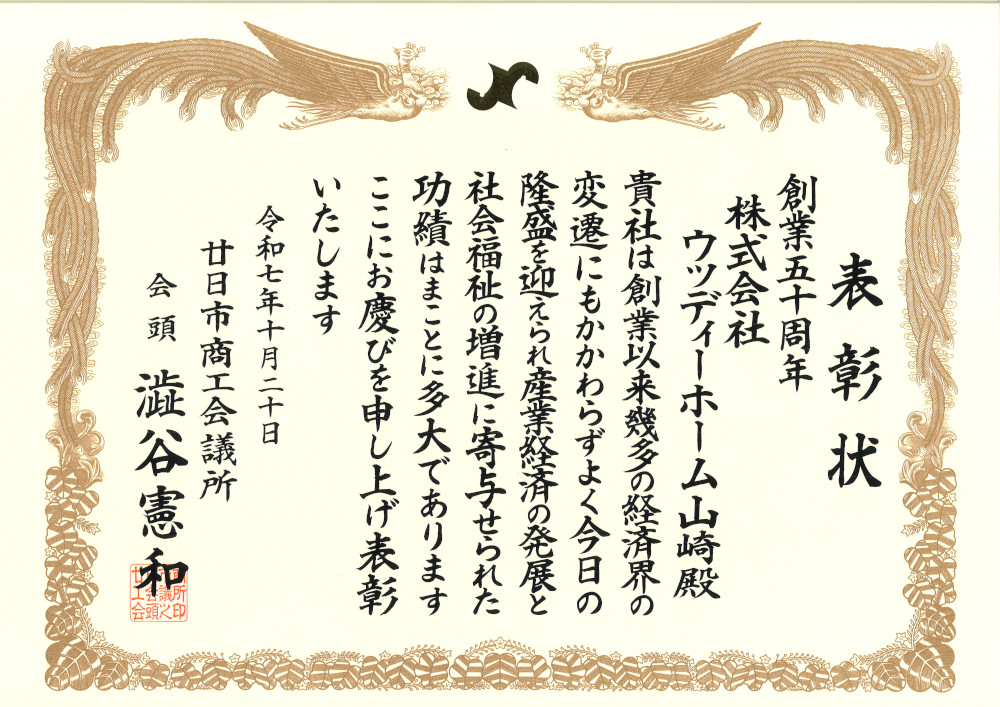 表彰状
創業五十周年
株式会社
ウッディーホーム山崎殿
貴社は創業以来幾多の経済界の
変遷にもかかわらずよく今日の
隆盛を迎えられ産業経済の発展と
社会福祉の増進に寄与せられた
功績はまことに多大であります
ここにお慶びを申し上げ表彰
いたします
令和七年十月二十日
廿日市商工会議所
会頭 澁谷憲和